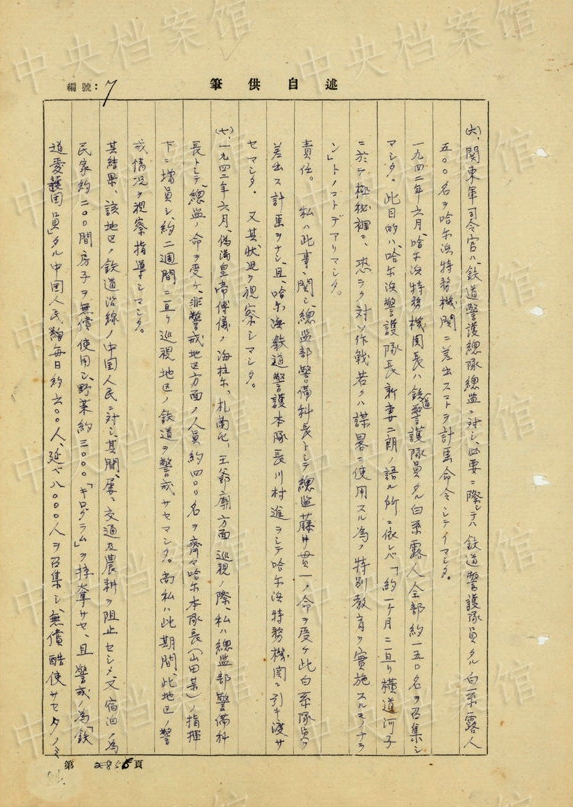 編號：7
筆供自述
(六)、関東軍司令官ハ、鉄道警護総隊総監ニ対シ、必要ニ際シテハ鉄道警護隊員タル白系露人
五〇〇名ヲ哈尓浜特務機関ニ差出スコトヲ計画命令シテイマシタ。
一九四二年六月、哈尓浜特務機関長ハ鉄道警護隊員タル白系露人全部約一五〇名ヲ召集シ
マシタ。此目的ハ、哈尓浜警護隊長新妻二朗ノ語ル所ニ依レバ「約一ヶ月ニ亘リ横道河子
ニ於テ極秘裡ニ、恐ラク対ソ作戦若クハ謀畧ニ使用スル為ノ特別教育ヲ実施スルモノナラ
ン」トノコトデアリマシタ。
責任。私ハ此事ニ関シ総監部警備科長トシテ總監藤井貫一ノ命ヲ受ケ此白系隊員ヲ
差出ス計画ヲナシ、且、哈尓浜鉄道警護本隊長川村進ヲシテ哈尓浜特務機関ニ引キ渡サ
セマシタ。又其状況ヲ視察シマシタ。
(七)、一九四二年六月、偽満皇帝傅儀ノ海拉尓、札蘭屯、王爺廟方面巡視ノ際、私ハ總監部警備科
長トシテ總監ノ命ヲ受ケ、非警戒地区方面ノ人員約四〇〇名ヲ齊々哈尓本隊長(山田某)ノ指揮
下ニ増員シ、約二週間ニ亘リ巡視地区ノ鉄道ヲ警戒サセマシタ。尚私ハ此期間、此地区ノ警
戒情況ヲ視察指導シマシタ。
其結果、該地区ノ鉄道沿線ノ中国人民ニ対シ其間、屡々交通及農耕ヲ阻止セシメ又宿泊ノ為
民家約二〇〇間房子ヲ無償使用シ、野菜約三〇〇〇「キログラム」ヲ掠奪サセ、且警戒ノ為「鉄
道愛護団員」タル中国人民毎日約六〇〇人、延ベ八〇〇〇人ヲ召集シ、無償酷使サセタノミ
第 頁
中央档案馆